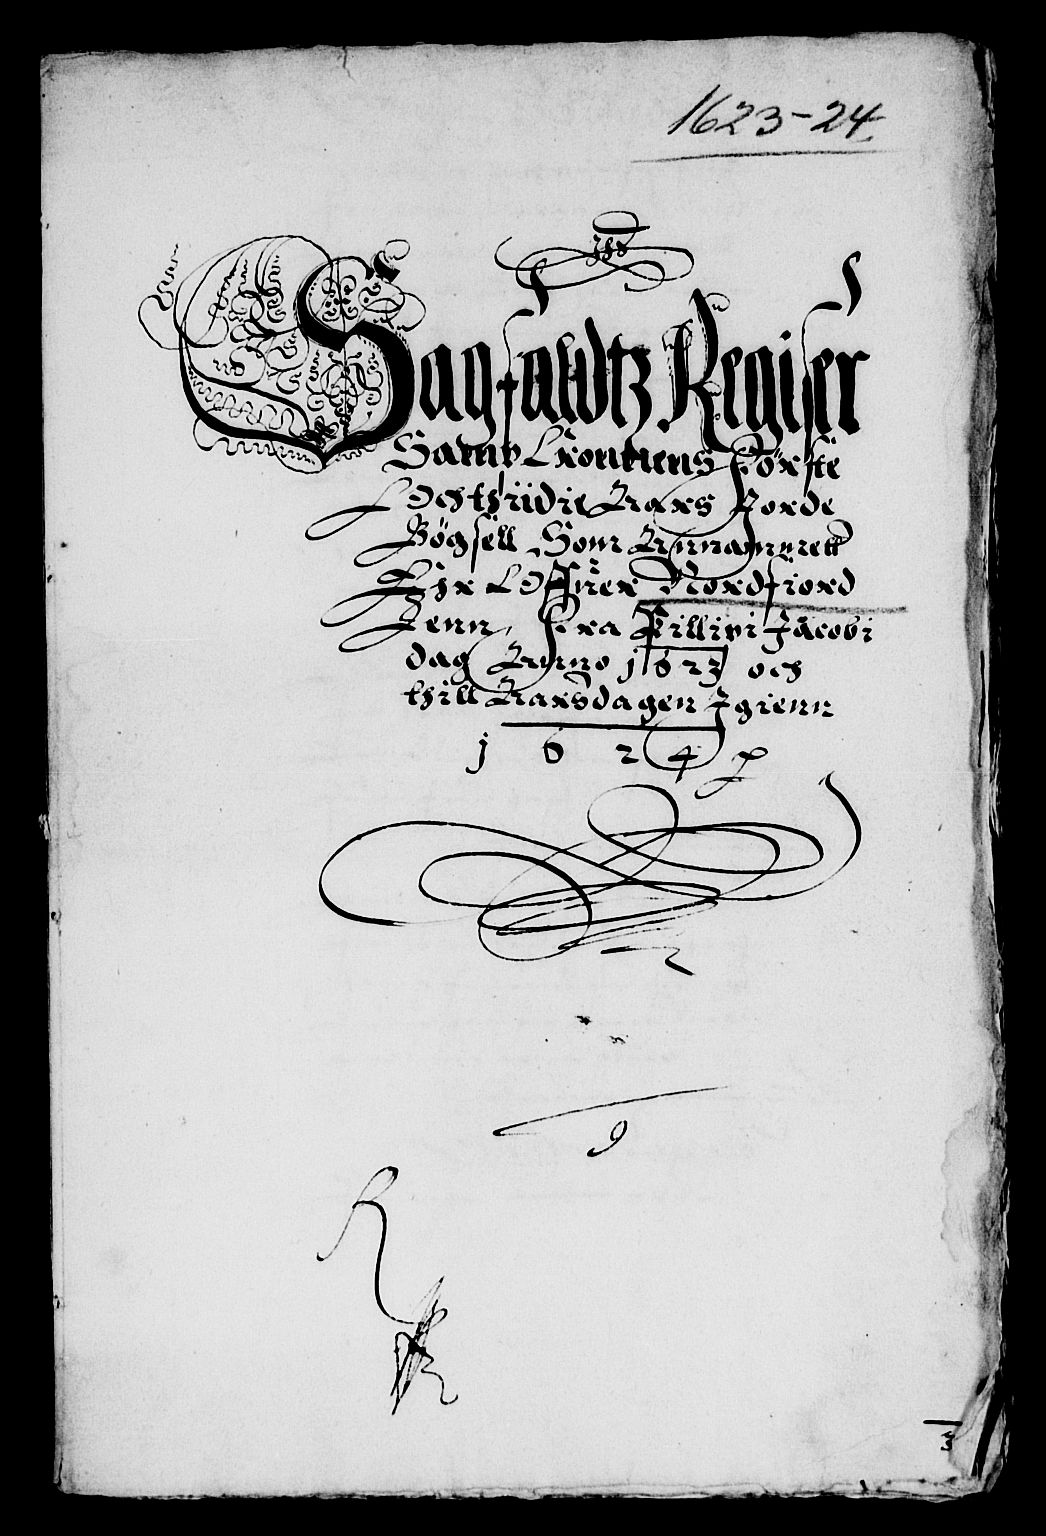 1623-24.
Sagfaldtz Register
Sampt Kronnens Første
Och thridie Aars Jorde
Bøgsell Som Annammett
Ehr Offuer Nordfiord
Jenn, Fra Pillipi Jacobi
dag Anno 1623 och
thill Aarsdagen Igienn
1 6 2 4
9